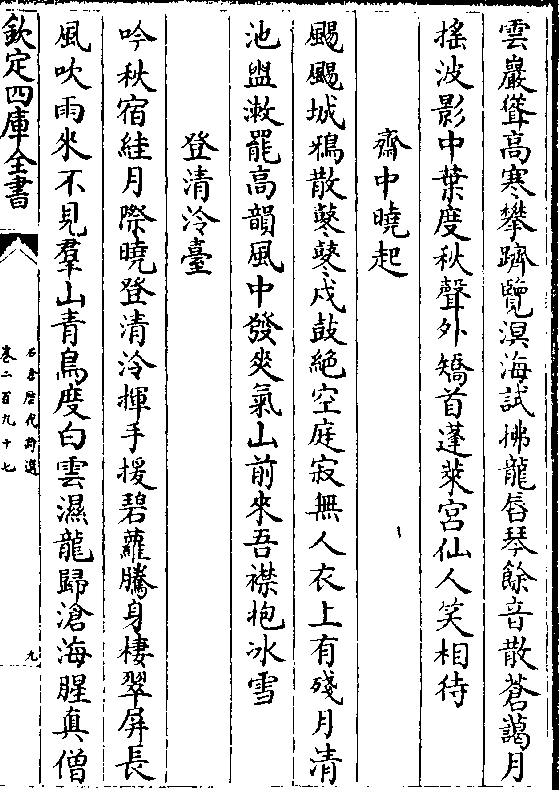 雲巖聳高寒攀躋覽溟海試拂龍唇琴餘音散蒼藹月
搖波影中葉度秋聲外矯首蓬萊宮仙人笑相待
齋中曉起
颺颺城鴉散鼕鼕戍鼓絶空庭寂無人衣上有殘月清
池盥漱罷高韻風中發爽氣山前來吾襟抱冰雪
登清泠臺
吟秋宿絓月際曉登清泠揮手援碧蘿騰身棲翠屏長
風吹雨來不見羣山青鳥度白雲濕龍歸滄海腥真僧
欽定四庫全書
石倉歷代詩選
卷二百九十七
九